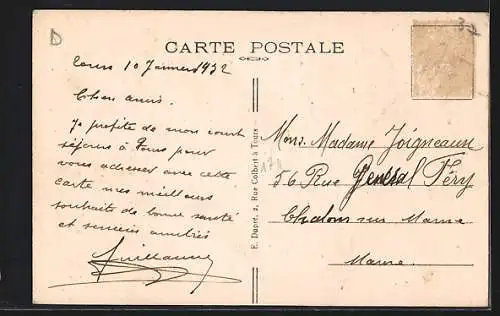 D
37
CARTE POSTALE
Tours 10 Janvier 1932
Chers amis.
Je profite de mon court
séjour à Tours pour
vous adresser avec cette
carte mes meilleurs
souhaits de bonne santé
et sincères amitiés
Guillaume
E. Dupré, 4, Rue Colbert à Tours
Mons. Madame Joigneaux
56 Rue General Féry
Chalons sur Marne
Marne.